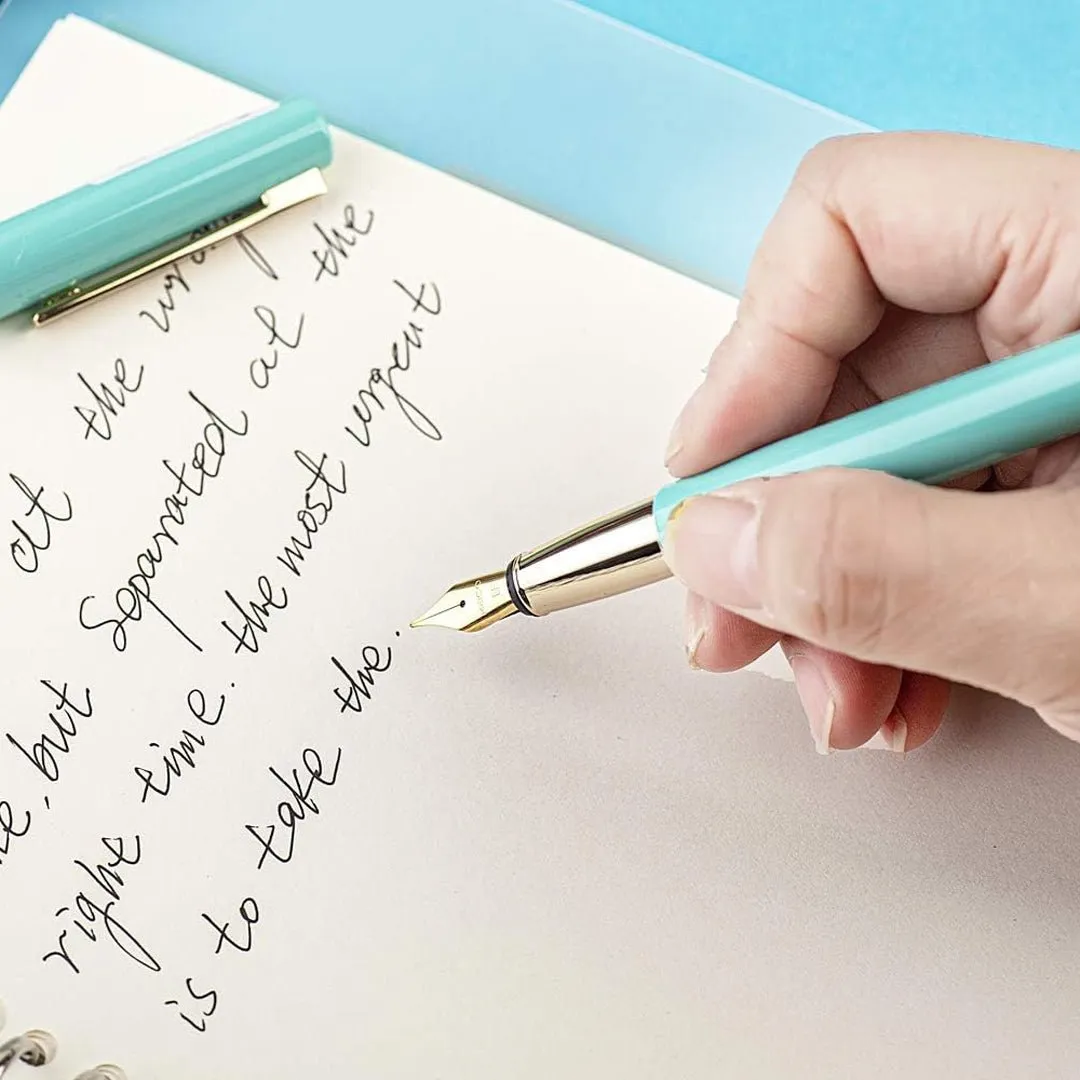 at the wrong
, but separated at the
right time. the most urgent
is to take the.